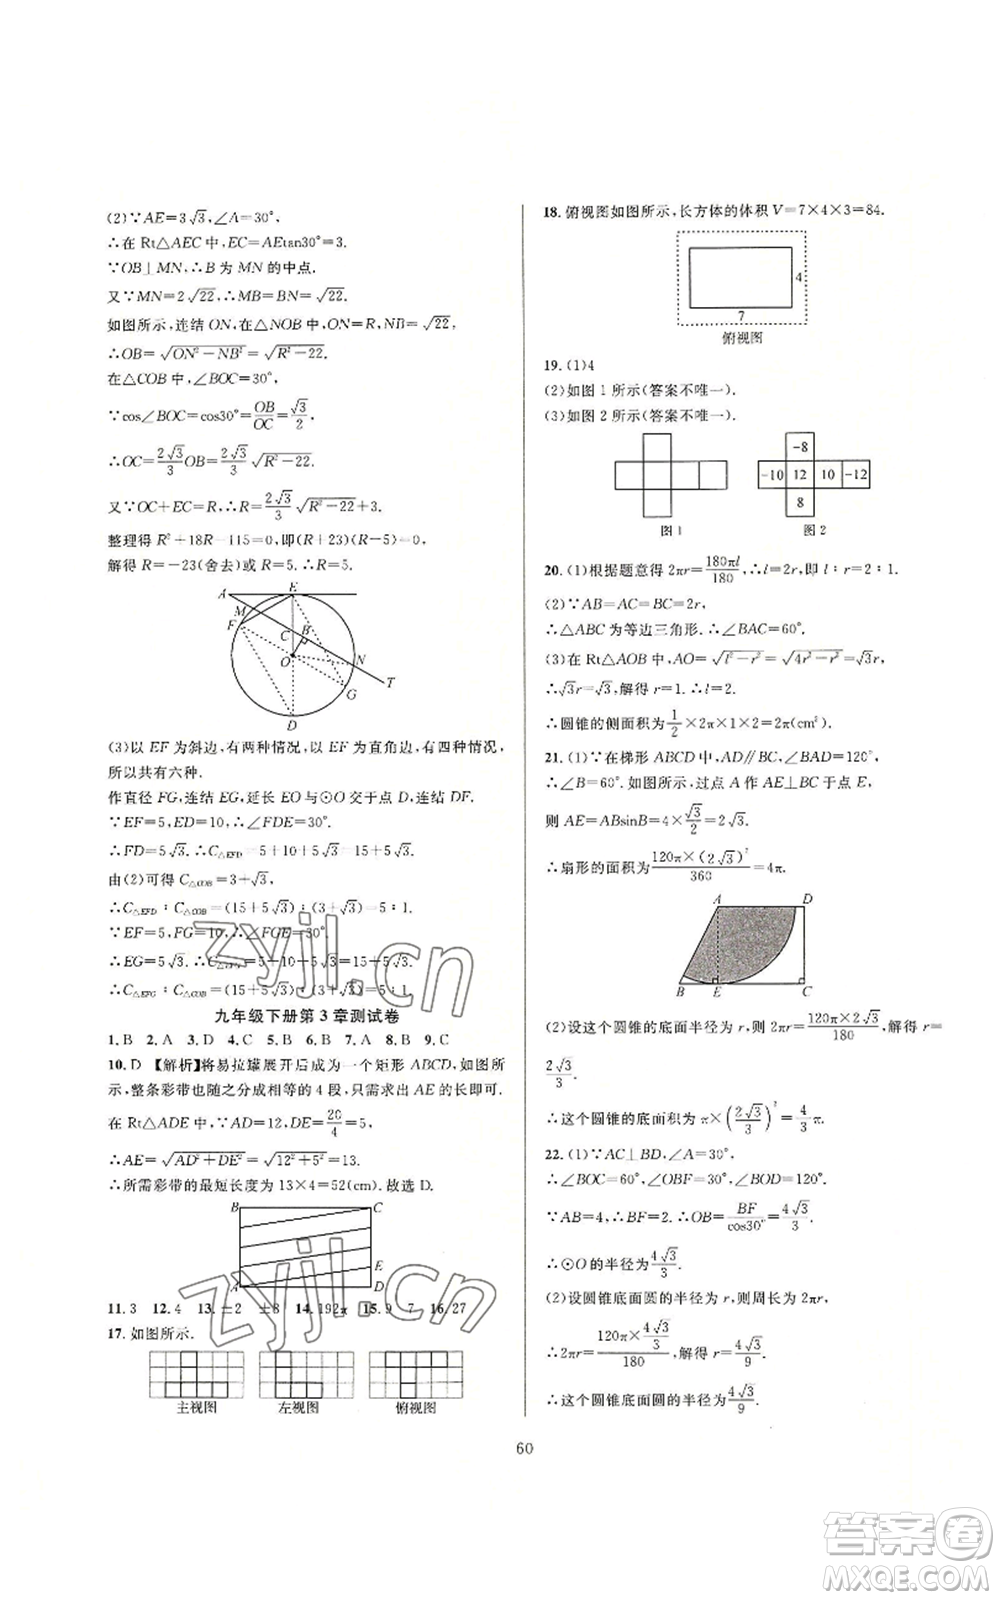 (2)∵AE=3√3,∠A=30°,
∴在 Rt△AEC 中,EC=AEtan30°=3.
∵OB⊥MN,∴B 为 MN 的中点.
又∵MN=2√22,∴MB=BN=√22.
如图所示,连结 ON,在△NOB 中,ON=R,NB=√22,
∴OB=√(ON²-NB²)=√(R²-22).
在△COB 中,∠BOC=30°,
∵cos∠BOC=cos30°=OB/OC=√3/2,
∴OC=2√3/3 OB=2√3/3 √(R²-22).
又∵OC+EC=R,∴R=2√3/3 √(R²-22)+3.
整理得 R²+18R-115=0,即(R+23)(R-5)=0,
解得 R=-23(舍去)或 R=5.∴R=5.
A E
M
F
C B
O N
G T
D
(3)以 EF 为斜边,有两种情况,以 EF 为直角边,有四种情况,
所以共有六种.
作直径 FG,连结 EG,延长 EO 与⊙O 交于点 D,连结 DF.
∵EF=5,ED=10,∴∠FDE=30°.
∴FD=5√3.∴C△EFD=5+10+5√3=15+5√3.
由(2)可得 C△COB=3+√3,
∴C△EFD∶C△COB=(15+5√3)∶(3+√3)=5∶1.
∵EF=5,FG=10,∴∠FGE=30°.
∴EG=5√3.∴C△EFG=5+10+5√3=15+5√3.
∴C△EFG∶C△COB=(15+5√3)∶(3+√3)=5∶1.
九年级下册第 3 章测试卷
1.B 2.A 3.D 4.C 5.B 6.B 7.A 8.B 9.C
10.D 【解析】将易拉罐展开后成为一个矩形 ABCD,如图所
示,整条彩带也随之分成相等的 4 段,只需求出 AE 的长即可.
在 Rt△ADE 中,∵AD=12,DE=20/4=5,
∴AE=√(AD²+DE²)=√(12²+5²)=13.
∴所需彩带的最短长度为 13×4=52(cm).故选 D.
B C
E
A D
11.3 12.4 13.±2 ±8 14.192π 15.9 7 16.27
17.如图所示.
主视图 左视图 俯视图
18.俯视图如图所示,长方体的体积 V=7×4×3=84.
4
7
俯视图
19.(1)4
(2)如图 1 所示(答案不唯一).
(3)如图 2 所示(答案不唯一).
-8
-10 12 10 -12
8
图 1 图 2
20.(1)根据题意得 2πr=180πl/180,∴l=2r,即 l∶r=2∶1.
(2)∵AB=AC=BC=2r,
∴△ABC 为等边三角形.∴∠BAC=60°.
(3)在 Rt△AOB 中,AO=√(l²-r²)=√(4r²-r²)=√3r,
∴√3r=√3,解得 r=1.∴l=2.
∴圆锥的侧面积为1/2×2π×1×2=2π(cm²).
21.(1)∵在梯形 ABCD 中,AD∥BC,∠BAD=120°,
∴∠B=60°.如图所示,过点 A 作 AE⊥BC 于点 E,
则 AE=ABsinB=4×√3/2=2√3.
∴扇形的面积为120π×(2√3)²/360=4π.
A D
B E C
(2)设这个圆锥的底面半径为 r,则 2πr=120π×2√3/180,解得 r=
2√3/3.
∴这个圆锥的底面积为 π×(2√3/3)²=4/3π.
22.(1)∵AC⊥BD,∠A=30°,
∴∠BOC=60°,∠OBF=30°,∠BOD=120°.
∵AB=4,∴BF=2.∴OB=BF/cos30°=4√3/3.
∴⊙O 的半径为4√3/3.
(2)设圆锥底面圆的半径为 r,则周长为 2πr,
∴2πr=120π×4√3/3/180,解得 r=4√3/9.
∴这个圆锥底面圆的半径为4√3/9.
60
zyjl.cn
zyjl.cn
答案卷
MXQE.COM